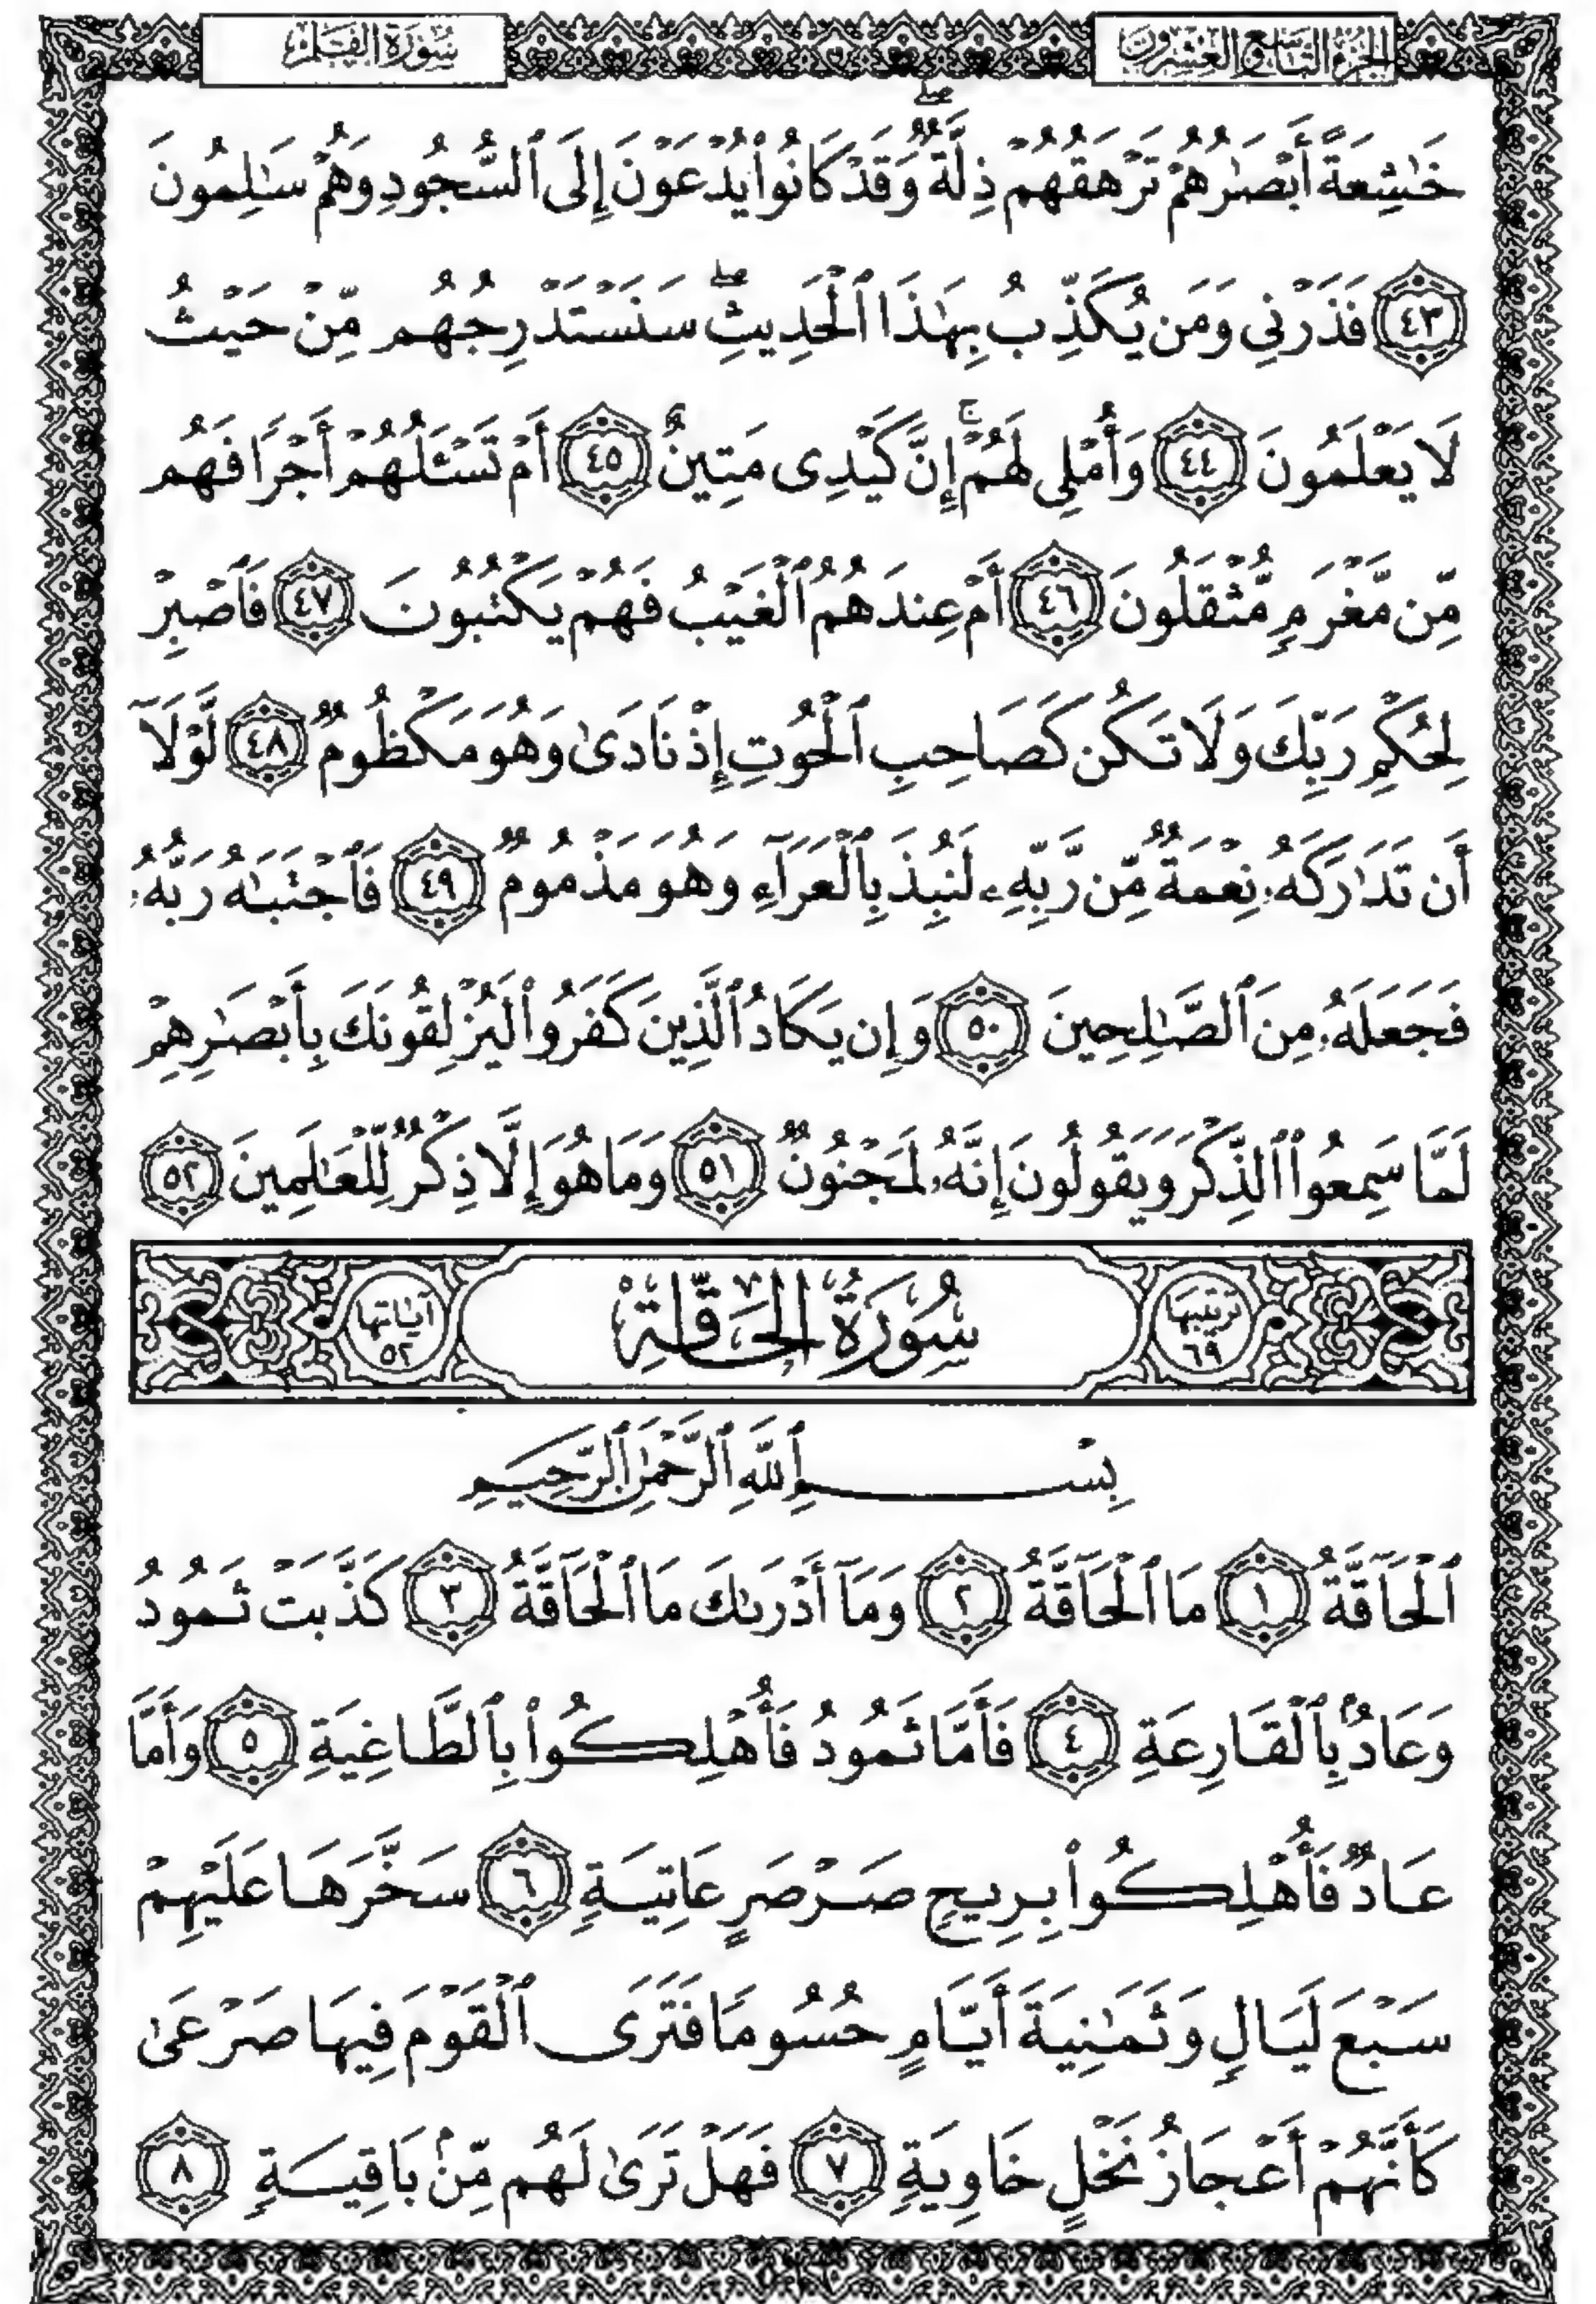 الجزء التاسع والعشرون
سورة القلم
خَـٰشِعَةً أَبْصَـٰرُهُمْ تَرْهَقُهُمْ ذِلَّةٌ ۖ وَقَدْ كَانُوا۟ يُدْعَوْنَ إِلَى ٱلسُّجُودِ وَهُمْ سَـٰلِمُونَ
٤٣ فَذَرْنِى وَمَن يُكَذِّبُ بِهَـٰذَا ٱلْحَدِيثِ ۖ سَنَسْتَدْرِجُهُم مِّنْ حَيْثُ
لَا يَعْلَمُونَ ٤٤ وَأُمْلِى لَهُمْ ۚ إِنَّ كَيْدِى مَتِينٌ ٤٥ أَمْ تَسْـَٔلُهُمْ أَجْرًا فَهُم
مِّن مَّغْرَمٍ مُّثْقَلُونَ ٤٦ أَمْ عِندَهُمُ ٱلْغَيْبُ فَهُمْ يَكْتُبُونَ ٤٧ فَٱصْبِرْ
لِحُكْمِ رَبِّكَ وَلَا تَكُن كَصَاحِبِ ٱلْحُوتِ إِذْ نَادَىٰ وَهُوَ مَكْظُومٌ ٤٨ لَّوْلَآ
أَن تَدَٰرَكَهُۥ نِعْمَةٌ مِّن رَّبِّهِۦ لَنُبِذَ بِٱلْعَرَآءِ وَهُوَ مَذْمُومٌ ٤٩ فَٱجْتَبَـٰهُ رَبُّهُۥ
فَجَعَلَهُۥ مِنَ ٱلصَّـٰلِحِينَ ٥٠ وَإِن يَكَادُ ٱلَّذِينَ كَفَرُوا۟ لَيُزْلِقُونَكَ بِأَبْصَـٰرِهِمْ
لَمَّا سَمِعُوا۟ ٱلذِّكْرَ وَيَقُولُونَ إِنَّهُۥ لَمَجْنُونٌ ٥١ وَمَا هُوَ إِلَّا ذِكْرٌ لِّلْعَـٰلَمِينَ ٥٢
ترتيبها ٦٩ سُورَةُ الحَاقَّةِ آياتها ٥٢
بِسْمِ ٱللَّهِ ٱلرَّحْمَـٰنِ ٱلرَّحِيمِ
ٱلْحَآقَّةُ ١ مَا ٱلْحَآقَّةُ ٢ وَمَآ أَدْرَىٰكَ مَا ٱلْحَآقَّةُ ٣ كَذَّبَتْ ثَمُودُ
وَعَادٌۢ بِٱلْقَارِعَةِ ٤ فَأَمَّا ثَمُودُ فَأُهْلِكُوا۟ بِٱلطَّاغِيَةِ ٥ وَأَمَّا
عَادٌ فَأُهْلِكُوا۟ بِرِيحٍ صَرْصَرٍ عَاتِيَةٍ ٦ سَخَّرَهَا عَلَيْهِمْ
سَبْعَ لَيَالٍ وَثَمَـٰنِيَةَ أَيَّامٍ حُسُومًا فَتَرَى ٱلْقَوْمَ فِيهَا صَرْعَىٰ
كَأَنَّهُمْ أَعْجَازُ نَخْلٍ خَاوِيَةٍ ٧ فَهَلْ تَرَىٰ لَهُم مِّنۢ بَاقِيَةٍ ٨